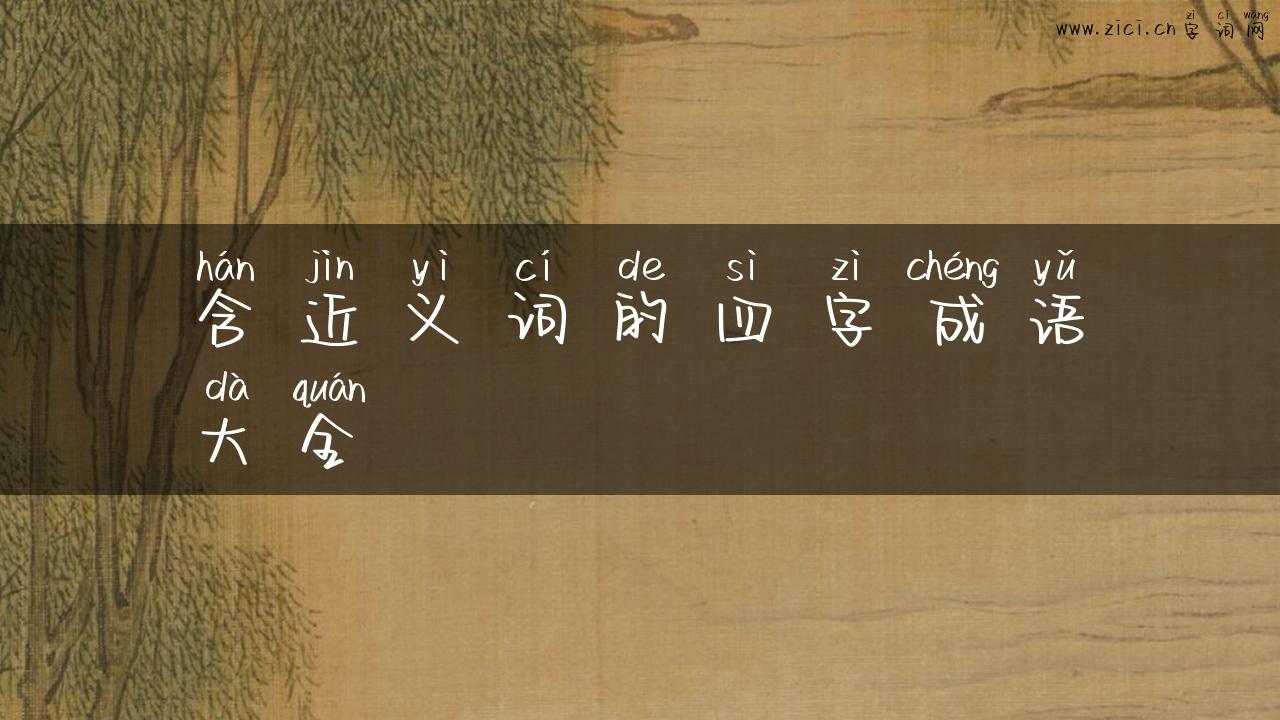 zì cí wǎng
www.zici.cn 字词网
hán jìn yì cí de sì zì chéng yǔ
含近义词的四字成语
dà quán
大全